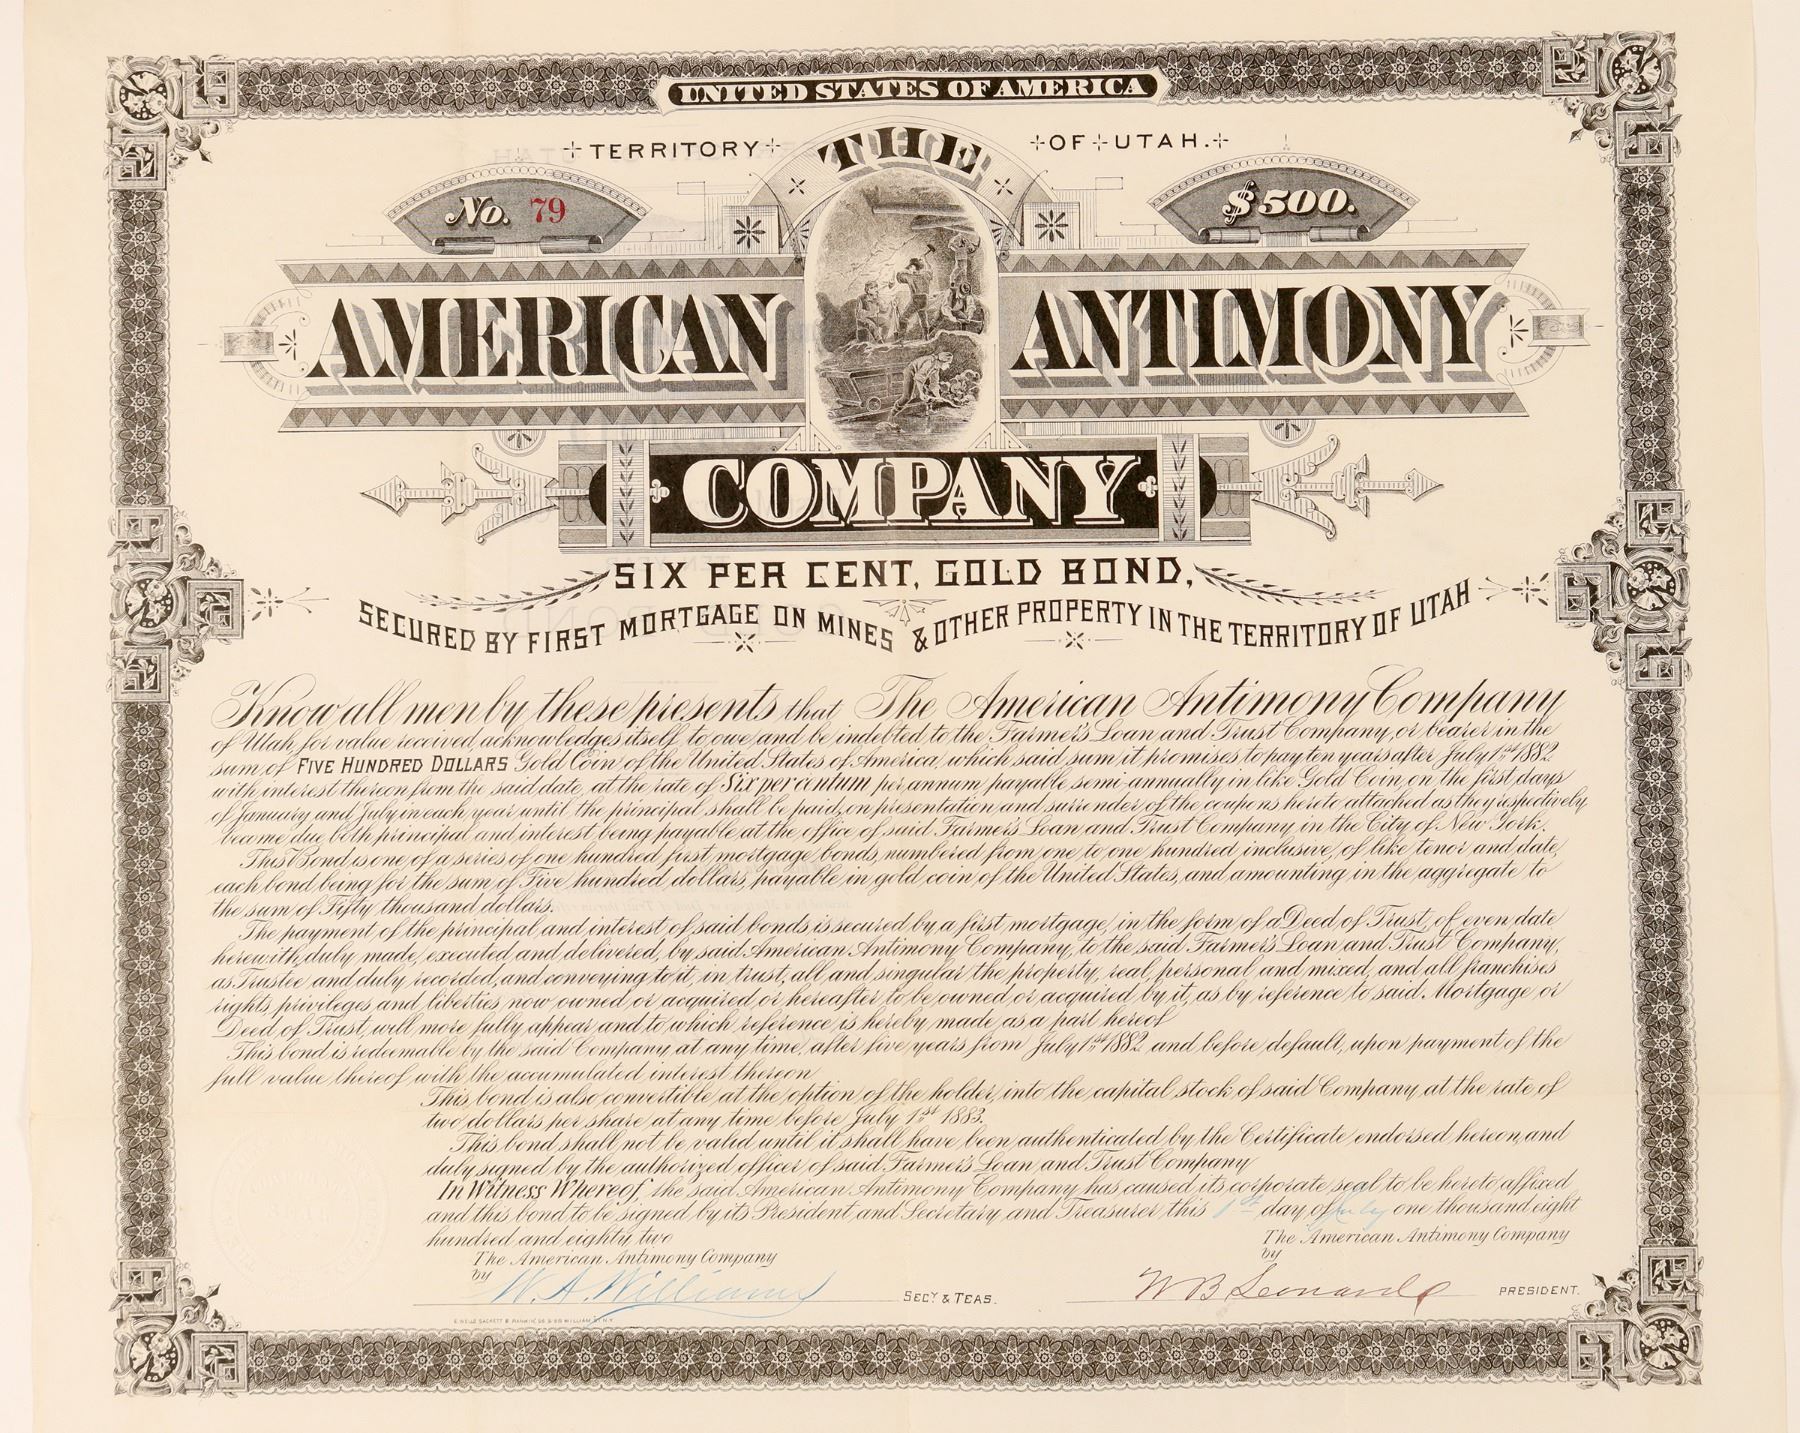 UNITED STATES OF AMERICA
TERRITORY OF UTAH.
THE
No. 79
$500.
AMERICAN ANTIMONY
COMPANY
SIX PER CENT, GOLD BOND,
SECURED BY FIRST MORTGAGE ON MINES & OTHER PROPERTY IN THE TERRITORY OF UTAH
Know all men by these presents that The American Antimony Company
of Utah, for value received, acknowledges itself to owe and be indebted to the Farmer's Loan and Trust Company, or bearer in the
sum of FIVE HUNDRED DOLLARS Gold Coin of the United States of America, which said sum it promises to pay ten years after July 1st 1882
with interest thereon from the said date, at the rate of Six per centum per annum payable semi-annually in like Gold Coin on the first days
of January and July in each year until the principal shall be paid, on presentation and surrender of the coupons hereto attached as they respectively
become due both principal and interest being payable at the office of said Farmer's Loan and Trust Company in the City of New York.
This Bond is one of a series of one hundred first mortgage bonds, numbered from one to one hundred inclusive, of like tenor and date,
each bond being for the sum of Five hundred dollars, payable in gold coin of the United States, and amounting in the aggregate to
the sum of Fifty thousand dollars.
The payment of the principal and interest of said bonds is secured by a first mortgage, in the form of a Deed of Trust, of even date
herewith, duly made, executed and delivered, by said American Antimony Company, to the said Farmer's Loan and Trust Company,
as Trustee and duly recorded, and conveying to it, in trust, all and singular the property, real, personal and mixed, and all franchises
rights, privileges and liberties, now owned or acquired, or hereafter to be owned or acquired by it, as by reference to said Mortgage or
Deed of Trust will more fully appear and to which reference is hereby made as a part hereof
This bond is redeemable by the said Company at any time, after five years from July 1st 1882 and before default, upon payment of the
full value thereof with the accumulated interest thereon
This bond is also convertible at the option of the holder, into the capital stock of said Company at the rate of
two dollars per share at any time before July 1st 1883.
This bond shall not be valid until it shall have been authenticated by the Certificate endorsed hereon, and
duly signed by the authorized officer of said Farmer's Loan and Trust Company
In Witness Whereof, the said American Antimony Company has caused its corporate seal to be hereto affixed
and this bond to be signed by its President and Secretary and Treasurer this 1st day of July one thousand eight
hundred and eighty two
The American Antimony Company
by W. A. Williams SECY. & TEAS.
The American Antimony Company
by W B Leonard PRESIDENT.